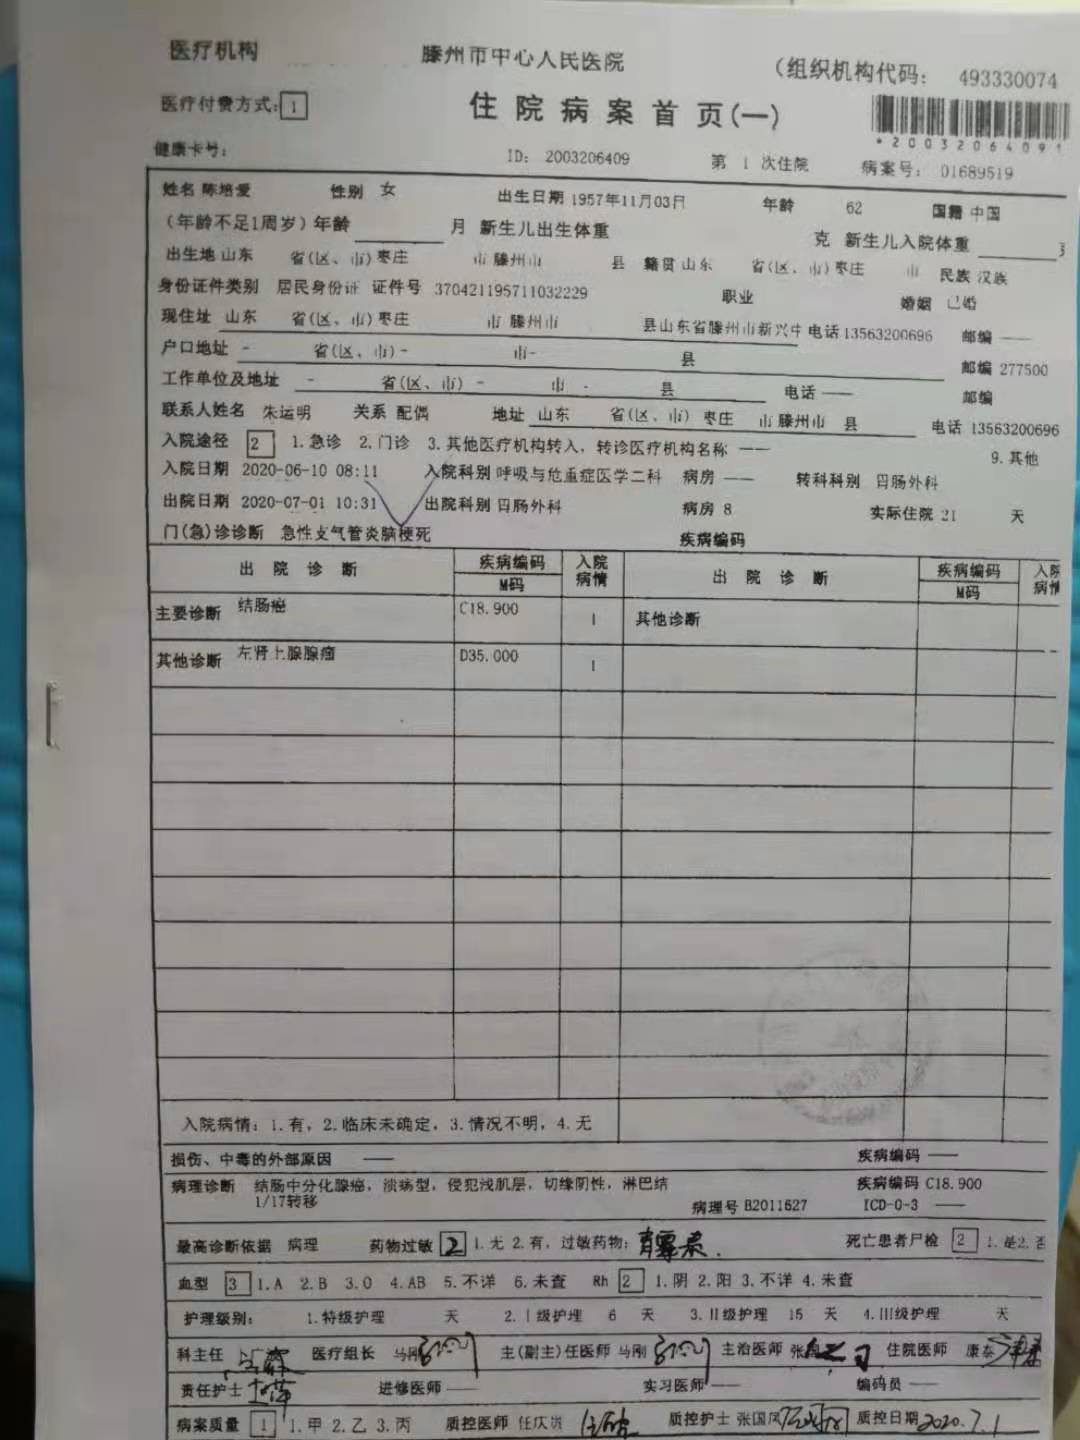 医疗机构 滕州市中心人民医院 (组织机构代码: 493330074
医疗付费方式: 1 住院病案首页(一)
*20032064091
健康卡号: ID: 2003206409 第 1 次住院 病案号: 01689519
姓名 陈培爱 性别 女 出生日期 1957年11月03日 年龄 62 国籍 中国
(年龄不足1周岁) 年龄 月 新生儿出生体重 克 新生儿入院体重
出生地 山东 省(区、市) 枣庄 市 滕州市 县 籍贯 山东 省(区、市) 枣庄 市 民族 汉族
身份证件类别 居民身份证 证件号 370421195711032229 职业 婚姻 已婚
现住址 山东 省(区、市) 枣庄 市 滕州市 县 山东省滕州市新兴中 电话 13563200696 邮编 ——
户口地址 - 省(区、市) - 市- 县 邮编 277500
工作单位及地址 - 省(区、市) - 市 - 县 电话 —— 邮编
联系人姓名 朱运明 关系 配偶 地址 山东 省(区、市) 枣庄 市 滕州市 县 电话 13563200696
入院途径 2 1.急诊 2.门诊 3.其他医疗机构转入,转诊医疗机构名称 —— 9.其他
入院日期 2020-06-10 08:11 入院科别 呼吸与危重症医学二科 病房 —— 转科科别 胃肠外科
出院日期 2020-07-01 10:31 出院科别 胃肠外科 病房 8 实际住院 21 天
门(急)诊诊断 急性支气管炎脑梗死 疾病编码
出院诊断 疾病编码 M码 入院病情 出院诊断 疾病编码 M码 入院病情
主要诊断 结肠癌 C18.900 1 其他诊断
其他诊断 左肾上腺腺瘤 D35.000 1
入院病情: 1.有, 2.临床未确定, 3.情况不明, 4.无
损伤、中毒的外部原因 —— 疾病编码 ——
病理诊断 结肠中分化腺癌,溃疡型,侵犯浅肌层,切缘阴性,淋巴结 疾病编码 C18.900
1/17转移 病理号 B2011627 ICD-O-3 ——
最高诊断依据 病理 药物过敏 2 1.无 2.有,过敏药物: 青霉素. 死亡患者尸检 2 1.是2.否
血型 3 1.A 2.B 3.O 4.AB 5.不详 6.未查 Rh 2 1.阴 2.阳 3.不详 4.未查
护理级别: 1.特级护理 天 2.Ⅰ级护理 6 天 3.Ⅱ级护理 15 天 4.Ⅲ级护理 天
科主任 医疗组长 马刚 主(副主)任医师 马刚 主治医师 张 住院医师 康泰
责任护士 进修医师 —— 实习医师 —— 编码员 ——
病案质量 1 1.甲 2.乙 3.丙 质控医师 任庆 质控护士 张国凤 质控日期 2020.7.1